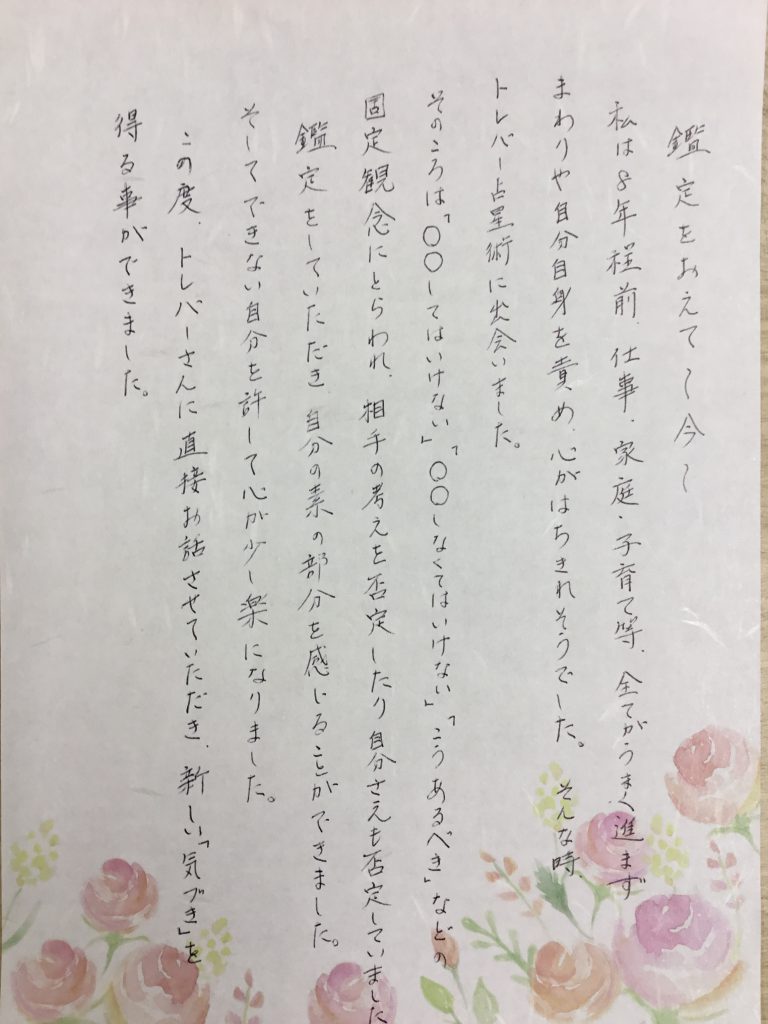 鑑定をおえて〜今〜
私は8年程前、仕事、家庭・子育て等、全てがうまく進まず
まわりや自分自身を責め、心がはちきれそうでした。そんな時、
トレバー占星術に出会いました。
そのころは「〇〇してはいけない」「〇〇しなくてはいけない」「こうあるべき」などの
固定観念にとらわれ、相手の考えを否定したり自分さえも否定していました
鑑定をしていただき、自分の素の部分を感じることができました。
そしてできない自分を許して心が少し楽になりました。
この度、トレバーさんに直接お話させていただき、新しい「気づき」を
得る事ができました。